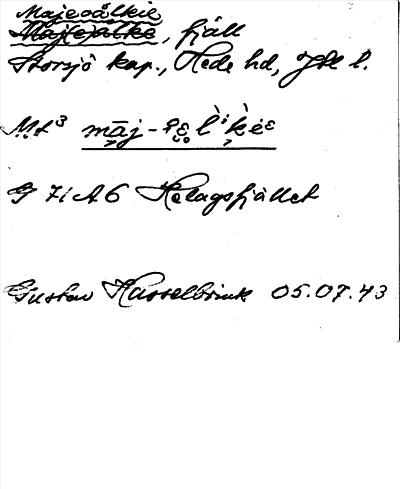 Majeoålkie
Maj(e)åtke, fjäll
Storsjö kap., Hede hd, Jtl l.
G 71 A6 Helagsfjället
Gustav Hasselbrink 05.07.43